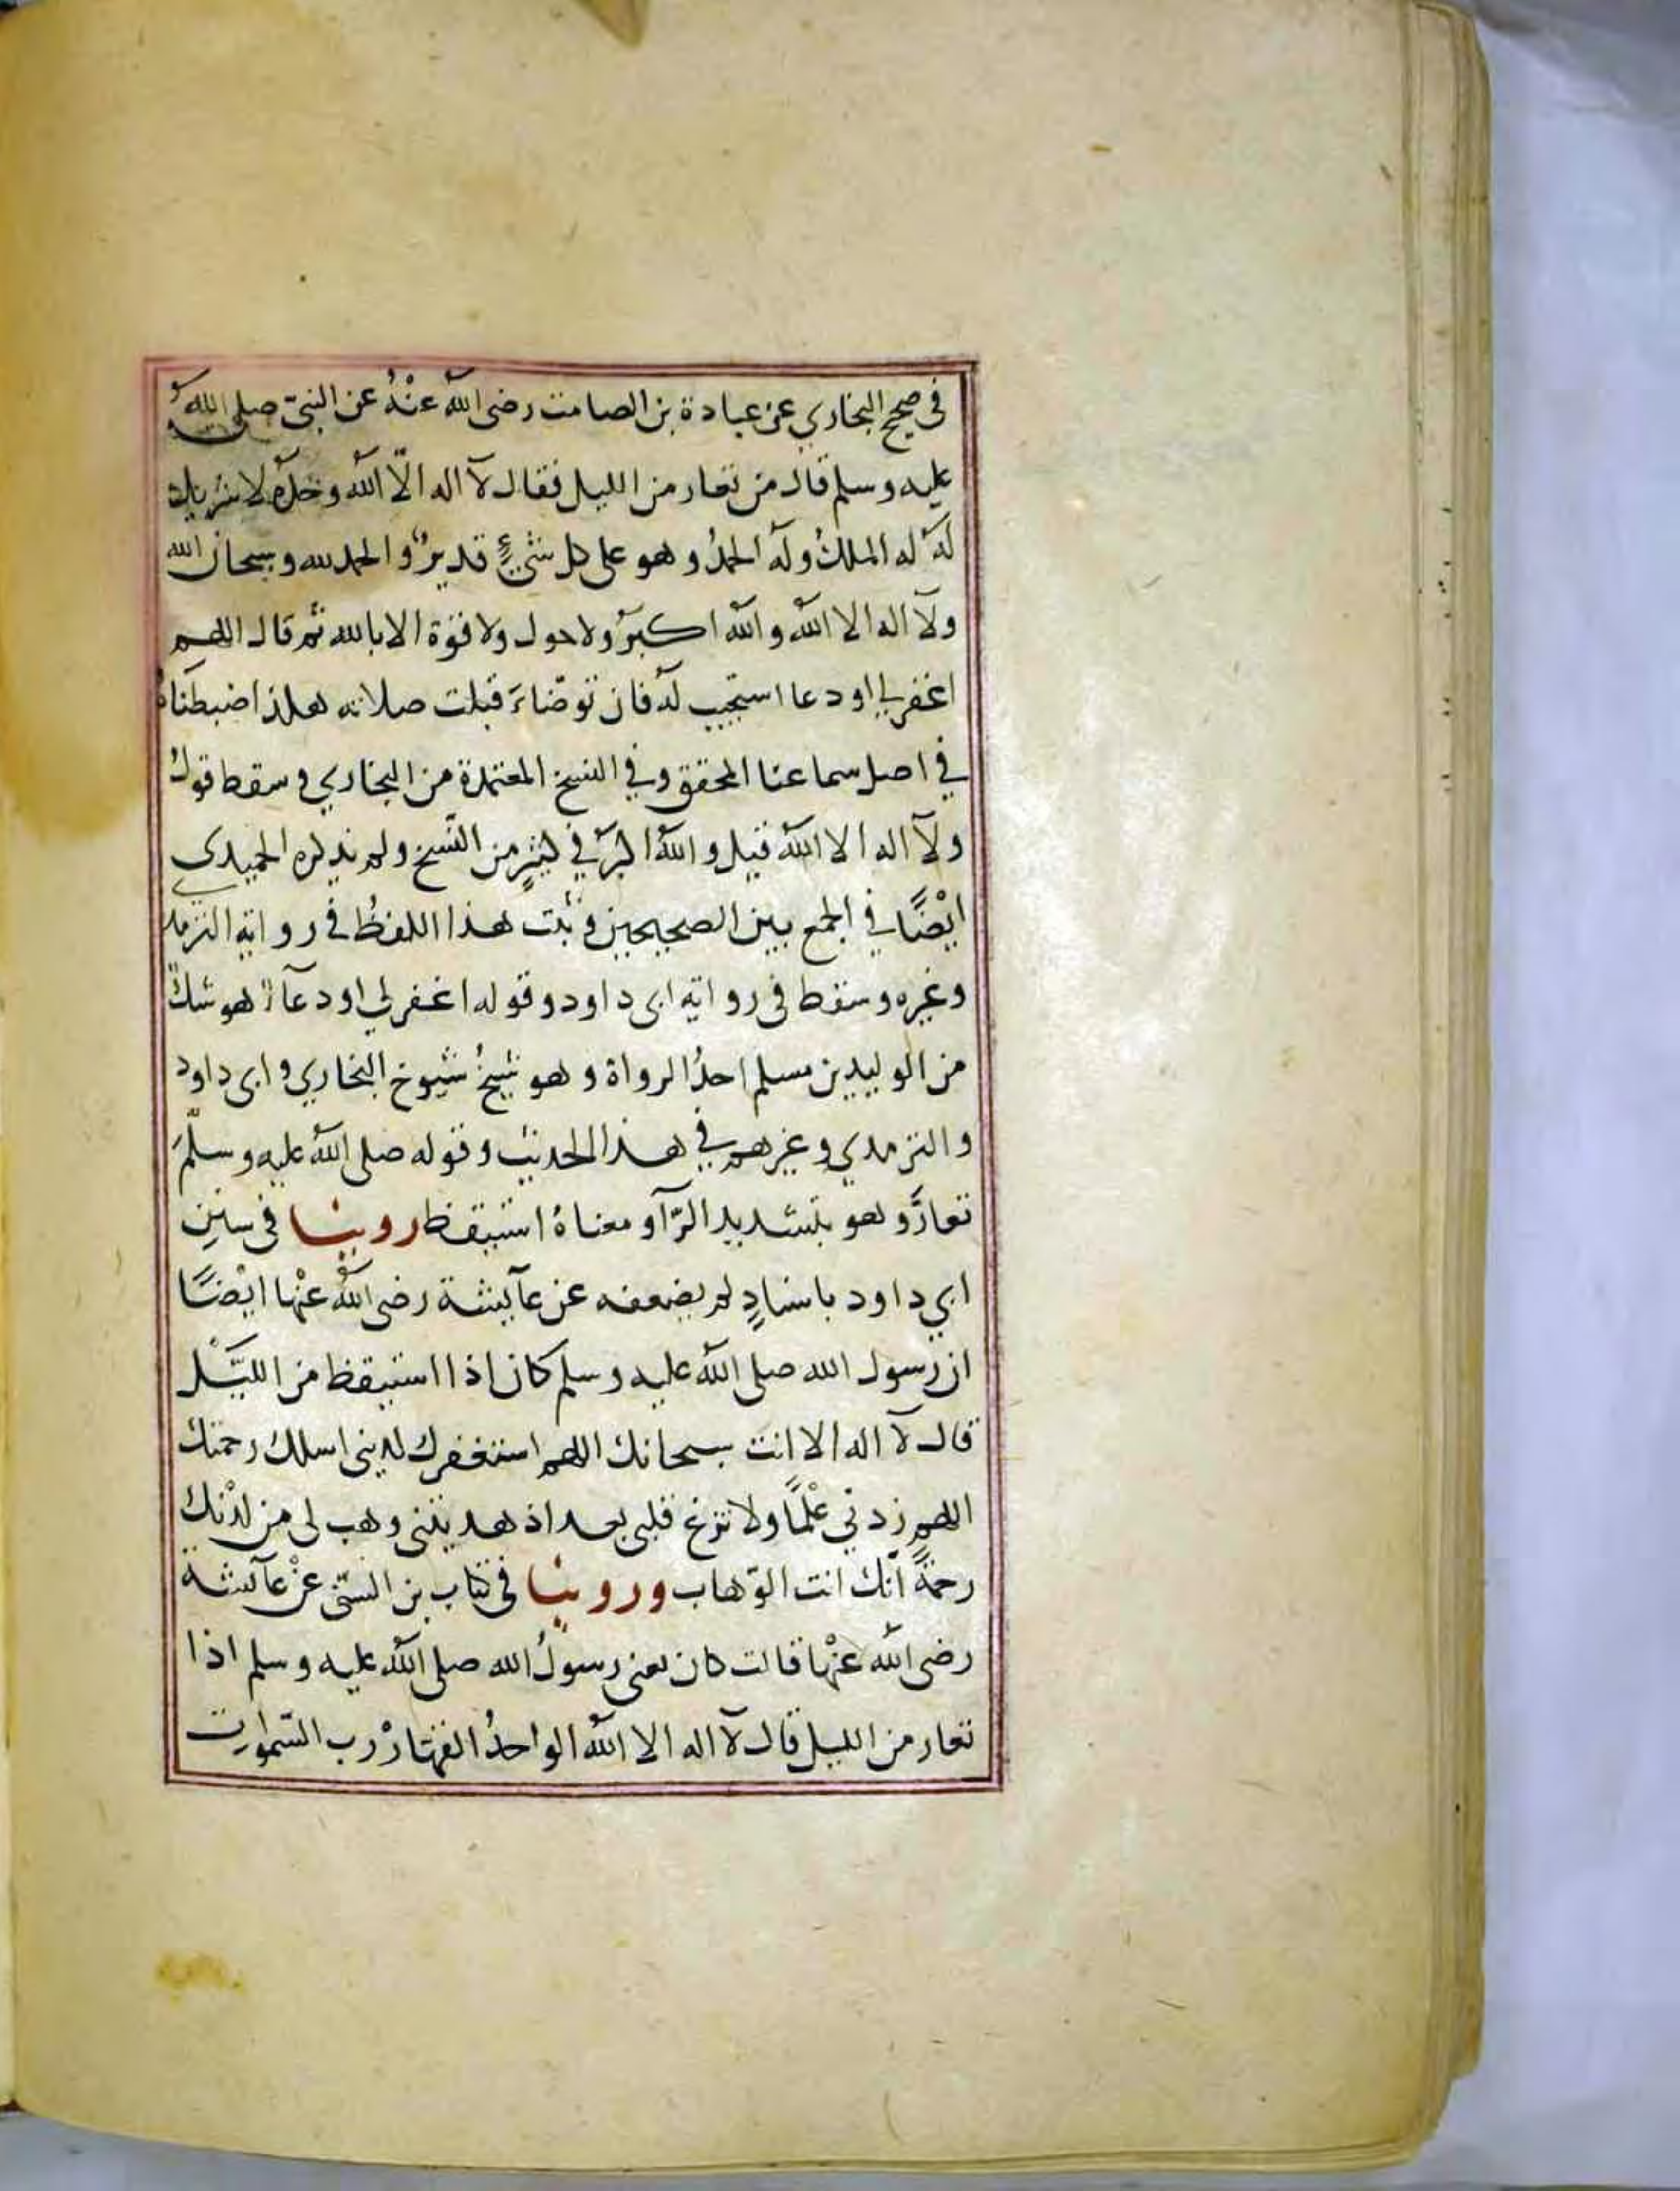 في صحيح البخاري عن عبادة بن الصامت رضى الله عنْهُ عن النبىّ صلى اللهُ
عليه وسلم قال من تعار من الليل فقال لآ اله الّا اللهُ وحْدَهُ لا شريك
لهُ له الملكُ وله الحمدُ وهو على كل شىءٍ قديرٌ والحمد لله وسبحان الله
ولآ اله الا اللهُ والله اكبرُ ولا حول ولا قوّة الا بالله ثم قال اللهم
اغفر لي او دعا استجيب له فان توضّاءَ قبلت صلاته هكذا ضبطناهُ
في اصل سماعنا المحقق وفي النسخ المعتمدة من البخاري وسقط قول
ولآ اله الا اللهُ قبل واللهُ اكبرُ في كثيرٍ من النّسخ ولم يذكره الحميدى
ايْضًا في الجمع بين الصحيحين وثبت هذا اللفظُ فى رواية الترمذي
وغيره وسقط فى رواية ابى داود وقوله اغفر لي او دعآ هو شكٌ
من الوليد بن مسلم احدُ الرواة وهو شيخُ شيُوخ البخاري وابى داود
والترمدي وغيرهم في هذا الحديث وقوله صلى اللهُ عليه وسلّمَ
تعارَّ وهو بتشديد الرّآ ومعناهُ استيقظ روينا فى سننِ
ابي داود باسنادٍ لم يضعفه عن عآيشة رضى اللهُ عنْها ايْضًا
ان رسول الله صلى الله عليه وسلم كان اذا استيقظ من الليْل
قال لآ اله الا انت سبحانك اللهم استغفرك لذنبى اسلك رحمتك
اللهم زدني عْلمًا ولا تزغ قلبى بعد اذ هديتنى وهب لى من لدُنْك
رحمةً انّك انت الوّهاب وروينا فى كتاب بن السنّى عنْ عآئشة
رضى الله عنْها قالت كان يعنى رسولُ الله صلى الله عليه وسلم اذا
تعار من الليل قال لآ اله الا اللهُ الواحدُ القهّارُ رب السّموات